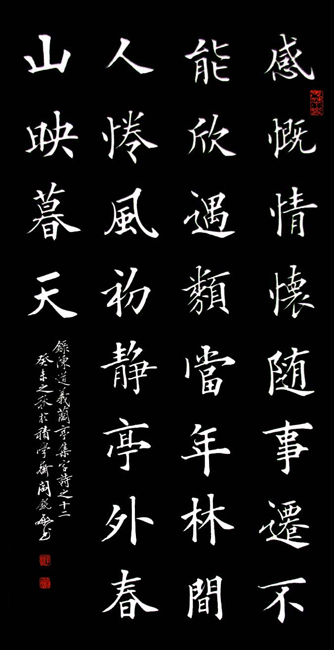 感慨情懷随事遷不
能欣遇類當年林間
人惓風初靜亭外春
山映暮天
錄陳道義蘭亭集字詩之十二
癸未之秋於積學齋